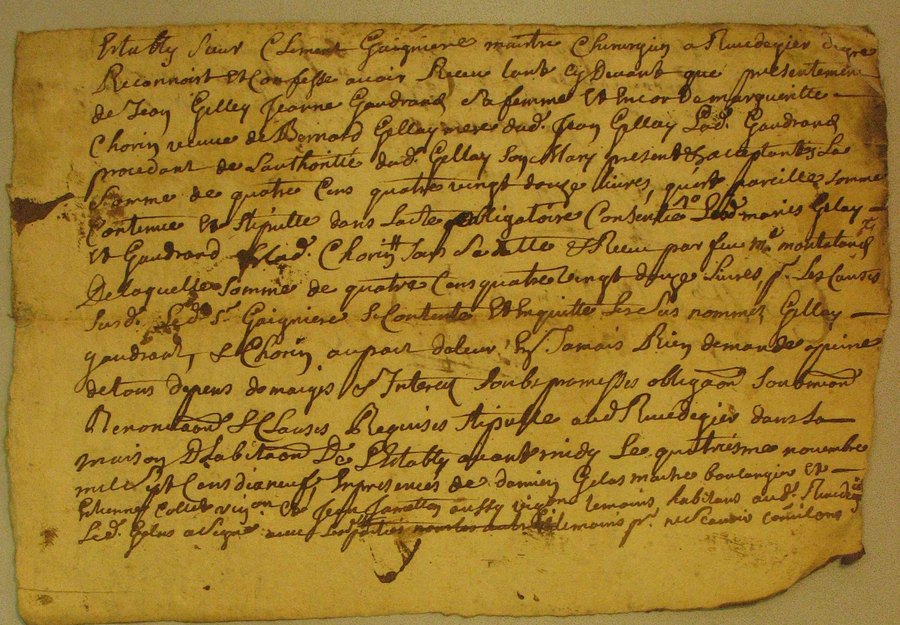 Estably sieur Clement Gaigniere maitre Chirurgien a Rivedegier degre
Reconnoist et Confesse avoir Receu tant cy Devant que presentement
de Jean Gillay Jeanne Gaudrand sa femme Et Encor De margueritte
Chorin veuve de Bernard Gillay mere dud. Jean Gillay Lad. Gaudrand
procedant de Lauthorité dud. Gillay son Mary present & acceptantes La
Somme de quatre Cens quatre vingt douze livres, quest pareille somme
Contenue Et stipullee dans Lacte obligatoire Consentie Lesd maries Gillay
Et Gaudrand Lad. Chorin sa & Receu par feu me montaland
De laquelle somme de quatre Cens quatre vingt douze Livres, Les Causes
susd. Led. Sr Gaigniere se Contente Et Enquitte Lesd nommez Gillay
gaudrand, & Chorin Jamais Rien demander a peine
de tous depens domaiges & Interetz soubz promesses obligaon
Renonciaons & Clauses Requises stipulle aud Rivedegier dans La
maison Dhabitaon De LEstably avant midy Le quatriesme novembre
mille sept Cens dix neuf, En presences de damien Gelas maitre boulangier Et
Estienne et Jean aussy temoins habitans aud. Rivedegier
Led. Gelas a signé avec temoins pr ne scavoir